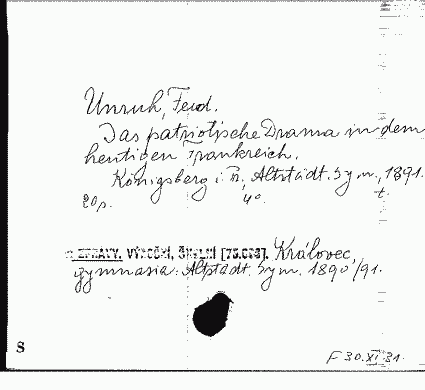 Unruh, Ferd.
Das patriotische Drama in dem
heutigen Frankreich.
Königsberg i. Altstädt. Gym., 1891.
20p. 4o.
ZPRÁVY, VÝROČNÍ, ŠKOLNÍ Královec,
gymnasia: Altstädt. Gym. 1890/91.
S
F 30.XI.31.